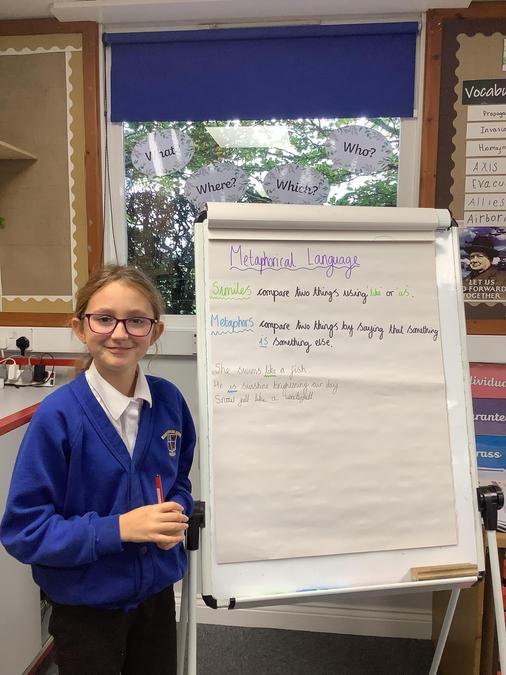 What
Where?
Which?
Who?
Metaphorical Language
Similes compare two things using 'like' or 'as'.
Metaphors compare two things by saying that something
is something else.
She swims like a fish
He is sunshine brightening our day
Snow fell like a
Vocabu
Propaga
Invasio
AXIS
Evacu
Allies
Airbor
LET US
O FORWARD
TOGETHER
ndividua
uarante
Brass